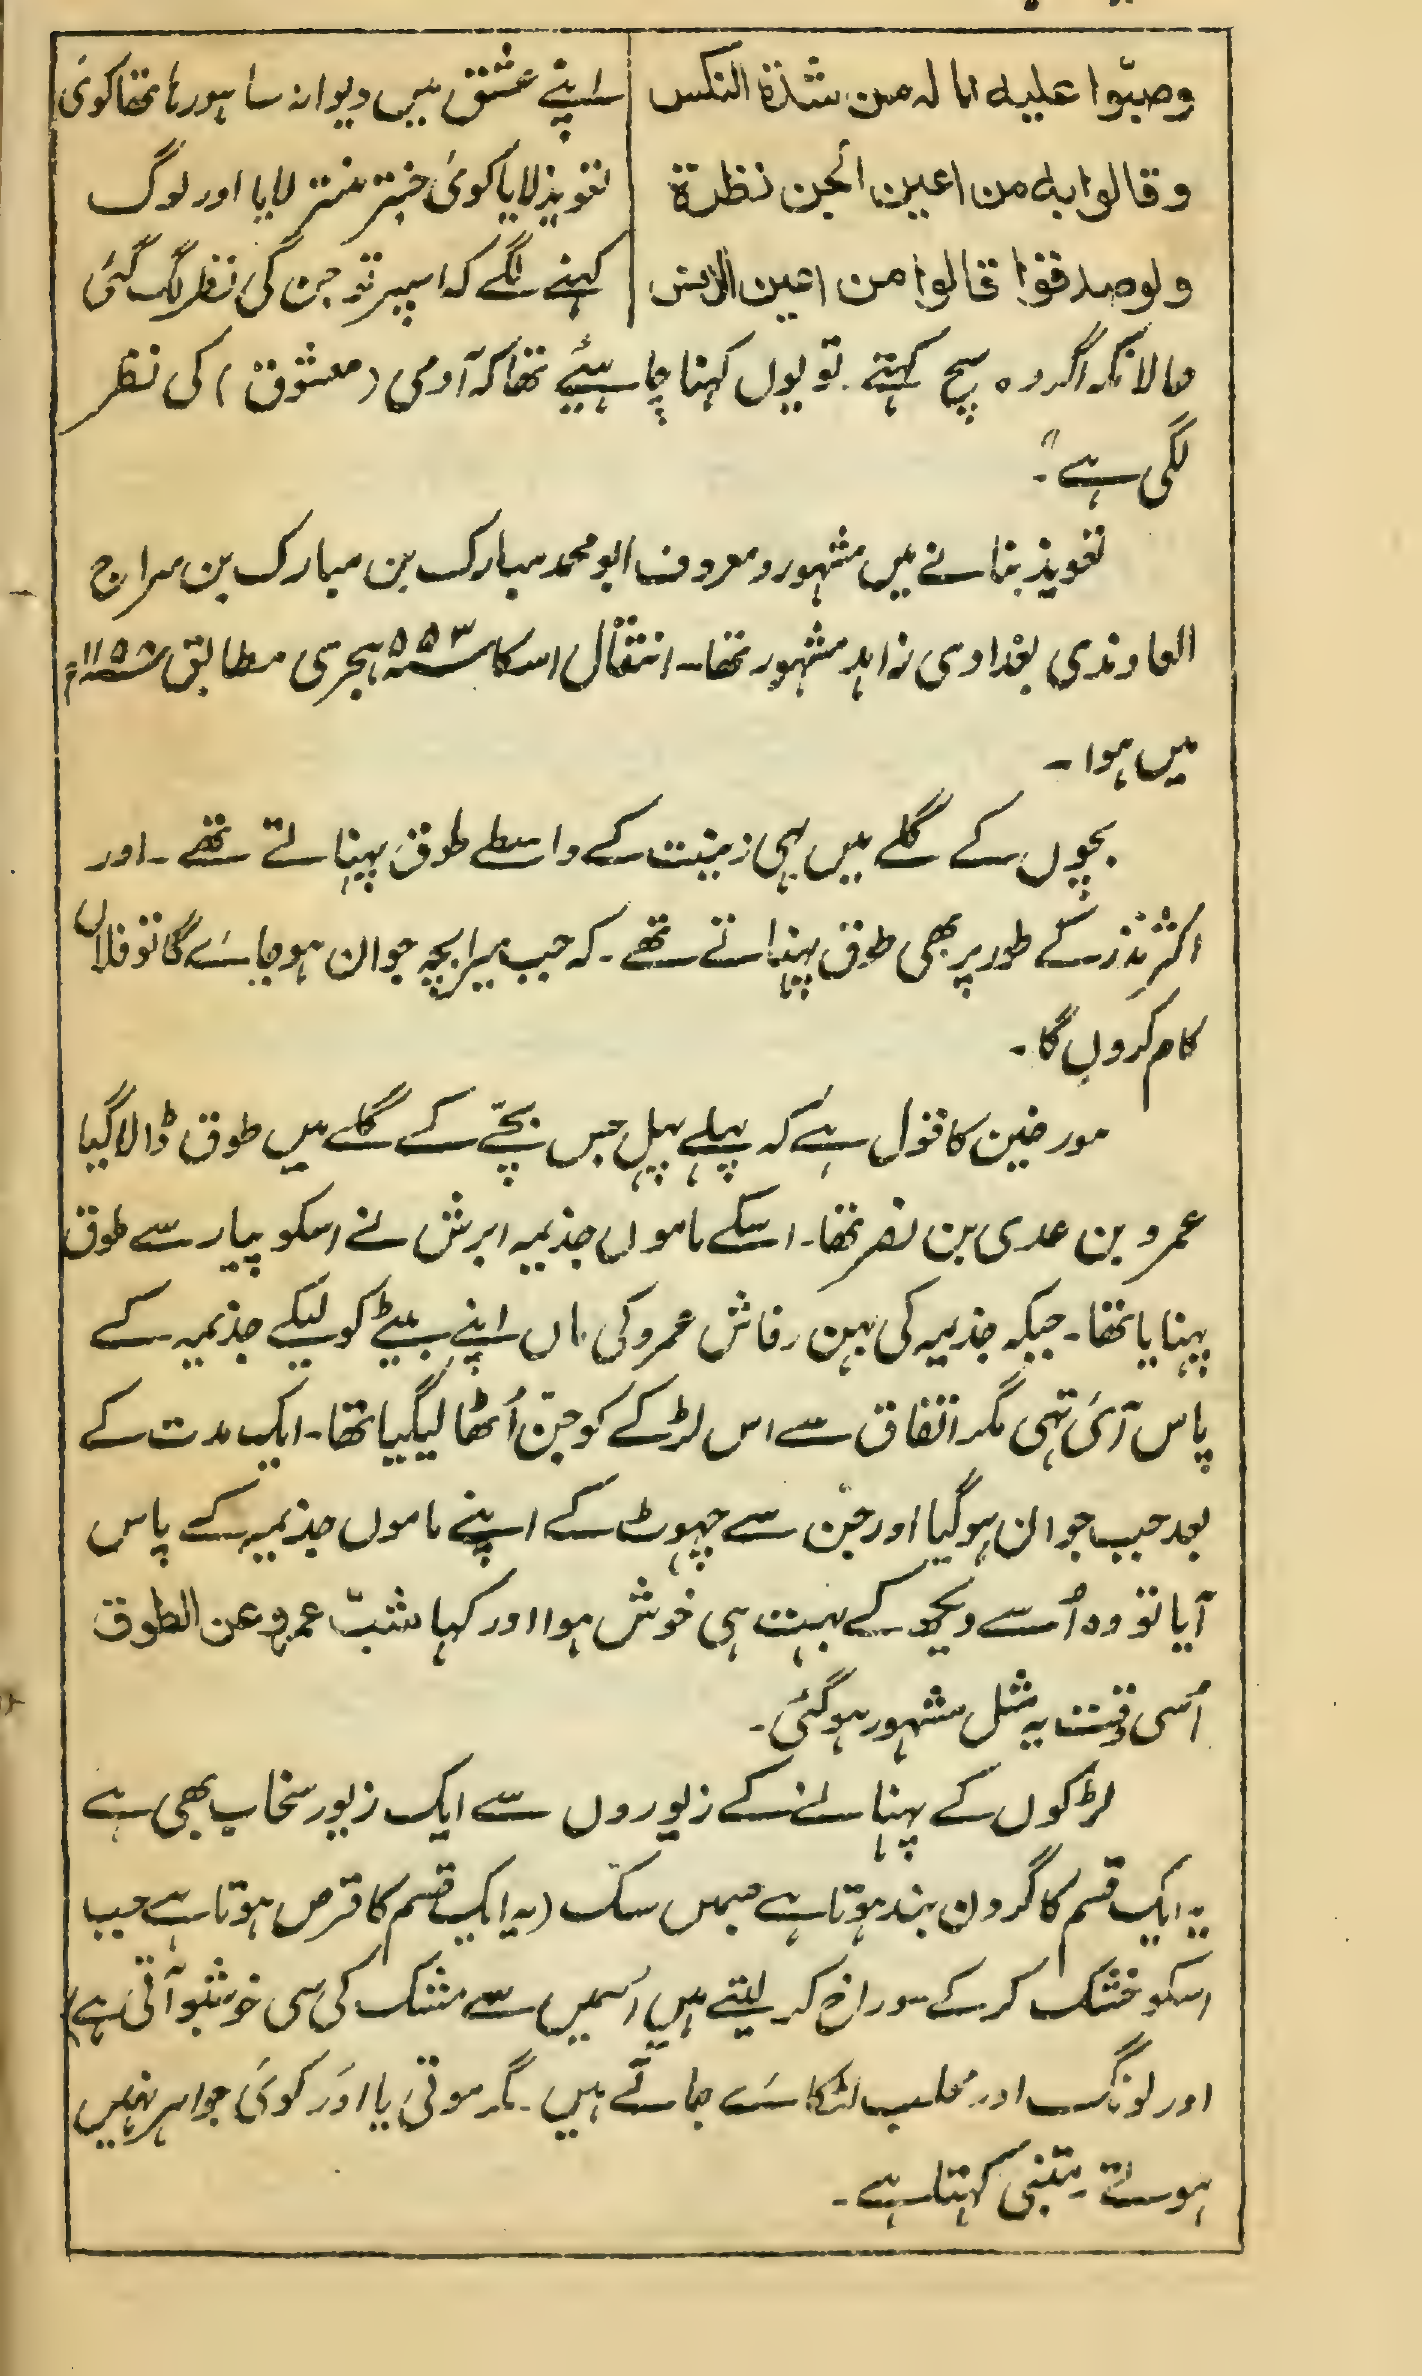 وصبّوا عليه الماله من شدة النكس
اپنے عشق میں دیوانہ سا ہورہا تھا کوئی
وقالوا به من اعين الجن نظرة
تعویذ لایا کوئی جنتر منتر لایا اور لوگ
ولوصدقوا قالوا من اعين الانس
کہنے لگے کہ اسپر تو جن کی نظر لگ گئی
حالانکہ اگر وہ سچ کہتے۔ تو یوں کہنا چاہئیے تھا کہ آدمی (معشوق) کی نظر
لگی ہے"۔
تعویذ بنانے میں مشہور و معروف ابو محمد مبارک بن مبارک بن سراج
بغدادی زاہد مشہور تھا۔ انتقال اسکا ۵۵۳ ہجری مطابق ۱۱۵۸ء
میں ہوا۔
بچوں کے گلے میں بھی زینت کے واسطے طوق پہناتے تھے۔ اور
اکثر نذر کے طور پر بھی طوق پہناتے تھے۔ کہ جب میرا بچہ جوان ہو جائے گا تو فلاں
کام کروں گا۔
مورخین کا قول ہے کہ پہلے پہل جس بچّے کے گلے میں طوق ڈالا گیا
عمرو بن عدی بن نصر تھا۔ اسکے ماموں جذیمہ ابرش نے اسکو پیار سے طوق
پہنایا تھا۔ جبکہ جذیمہ کی بہن رقاش عمرو کی ماں اپنے بیٹے کو لیکے جذیمہ کے
پاس آئی تہی مگر اتفاق سے اس لڑکے کو جنّ اُٹھا لیگیا تھا۔ ایک مدت کے
بعد جب جوان ہو گیا اور جنّ سے چہوٹ کے اپنے ماموں جذیمہ کے پاس
آیا تو وہ اُسے دیکھ کے بہت ہی خوش ہوا اور کہا شبّ عمرو عن الطوق
اُسی وقت یہ مثل مشہور ہو گئی۔
لڑکوں کے پہنانے کے زیوروں سے ایک زیور سخاب بھی ہے
یہ ایک قسم کا گردن بند ہوتا ہے جسمیں سک (یہ ایک قسم کا قرص ہوتا ہے جب
اسکو خشک کر کے سوراخ کر لیتے ہیں اُسمیں سے مشک کی سی خوشبو آتی ہے)
اور لونگ اور محلب لٹکائے جاتے ہیں۔ مگر موتی یا اَور کوئی جواہر نہیں
ہوتے۔ متنبی کہتا ہے۔